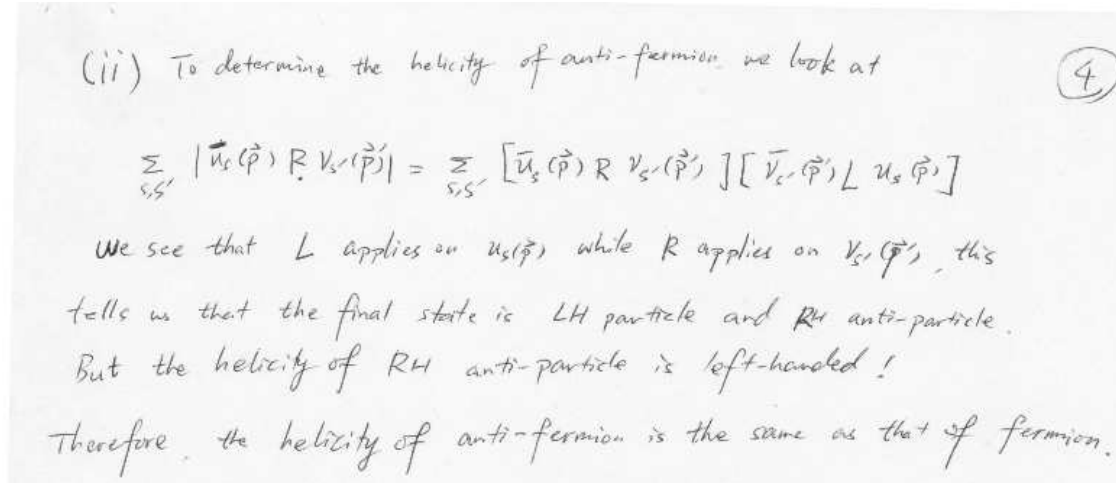 (ii) To determine the helicity of anti-fermion we look at
4
∑_{s,s'} |ū_s(p⃗) R v_{s'}(p⃗')| = ∑_{s,s'} [ū_s(p⃗) R v_{s'}(p⃗')][v̄_{s'}(p⃗') L u_s(p⃗)]
We see that L applies on u_s(p⃗) while R applies on v_{s'}(p⃗'), this
tells us that the final state is LH particle and RH anti-particle.
But the helicity of RH anti-particle is left-handed!
Therefore, the helicity of anti-fermion is the same as that of fermion.